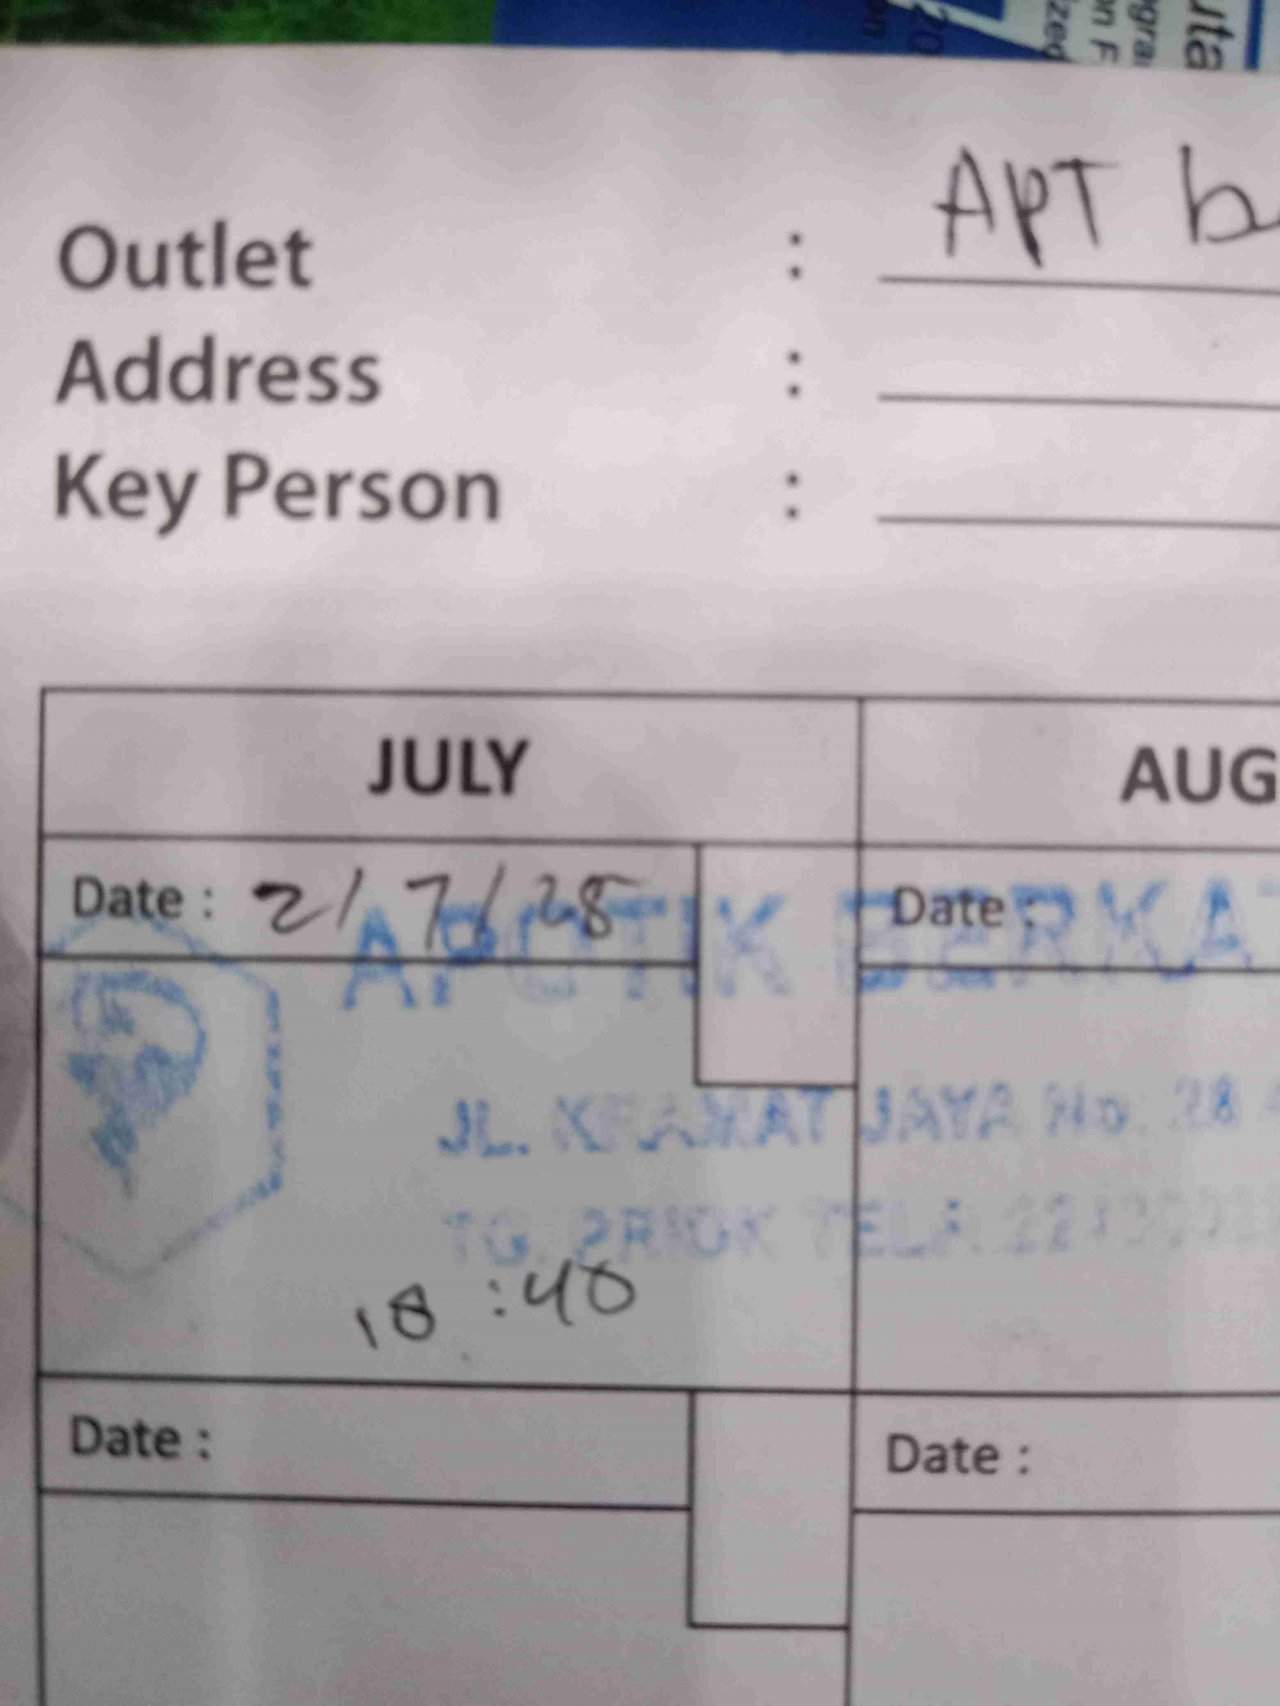 20
Outlet : APT b
Address :
Key Person :
JULY AUG
Date : 2/7/25 Date :
APOTIK BERKAT
JL. KRAMAT JAYA No. 28
TG. PRIOK TELP.
18:40
Date : Date :